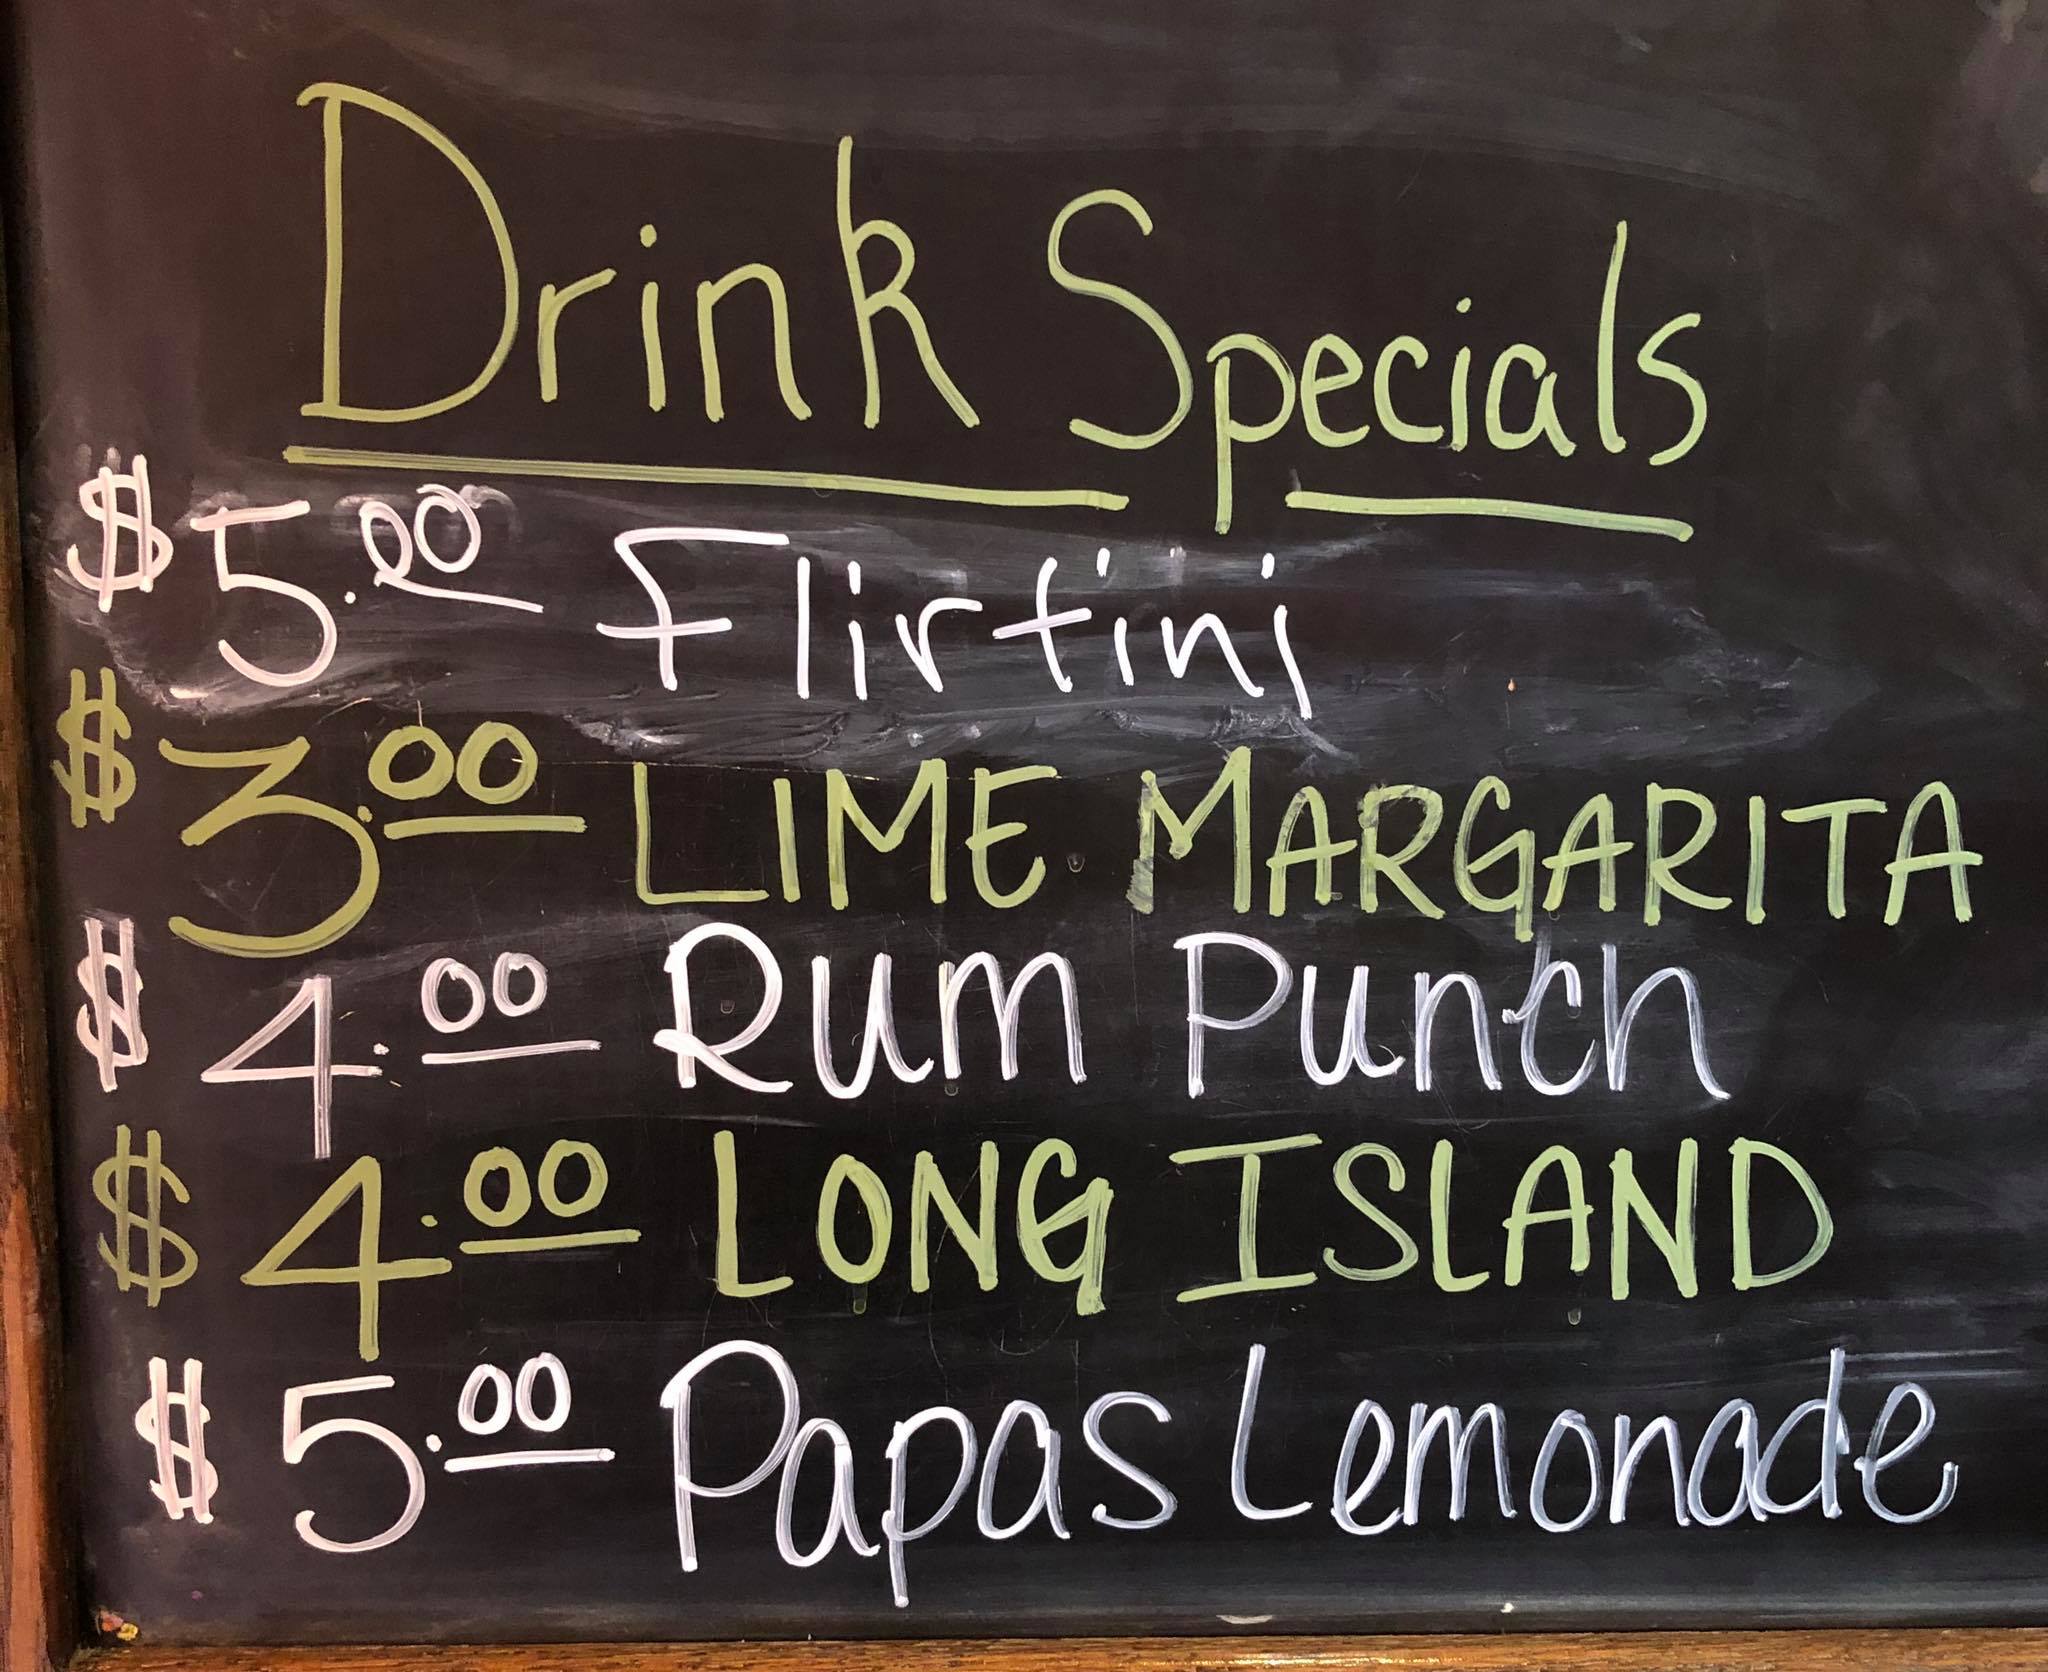 Drink Specials
$5.00 Flirtini
$3.00 LIME MARGARITA
$4.00 Rum Punch
$4.00 LONG ISLAND
$5.00 Papas Lemonade